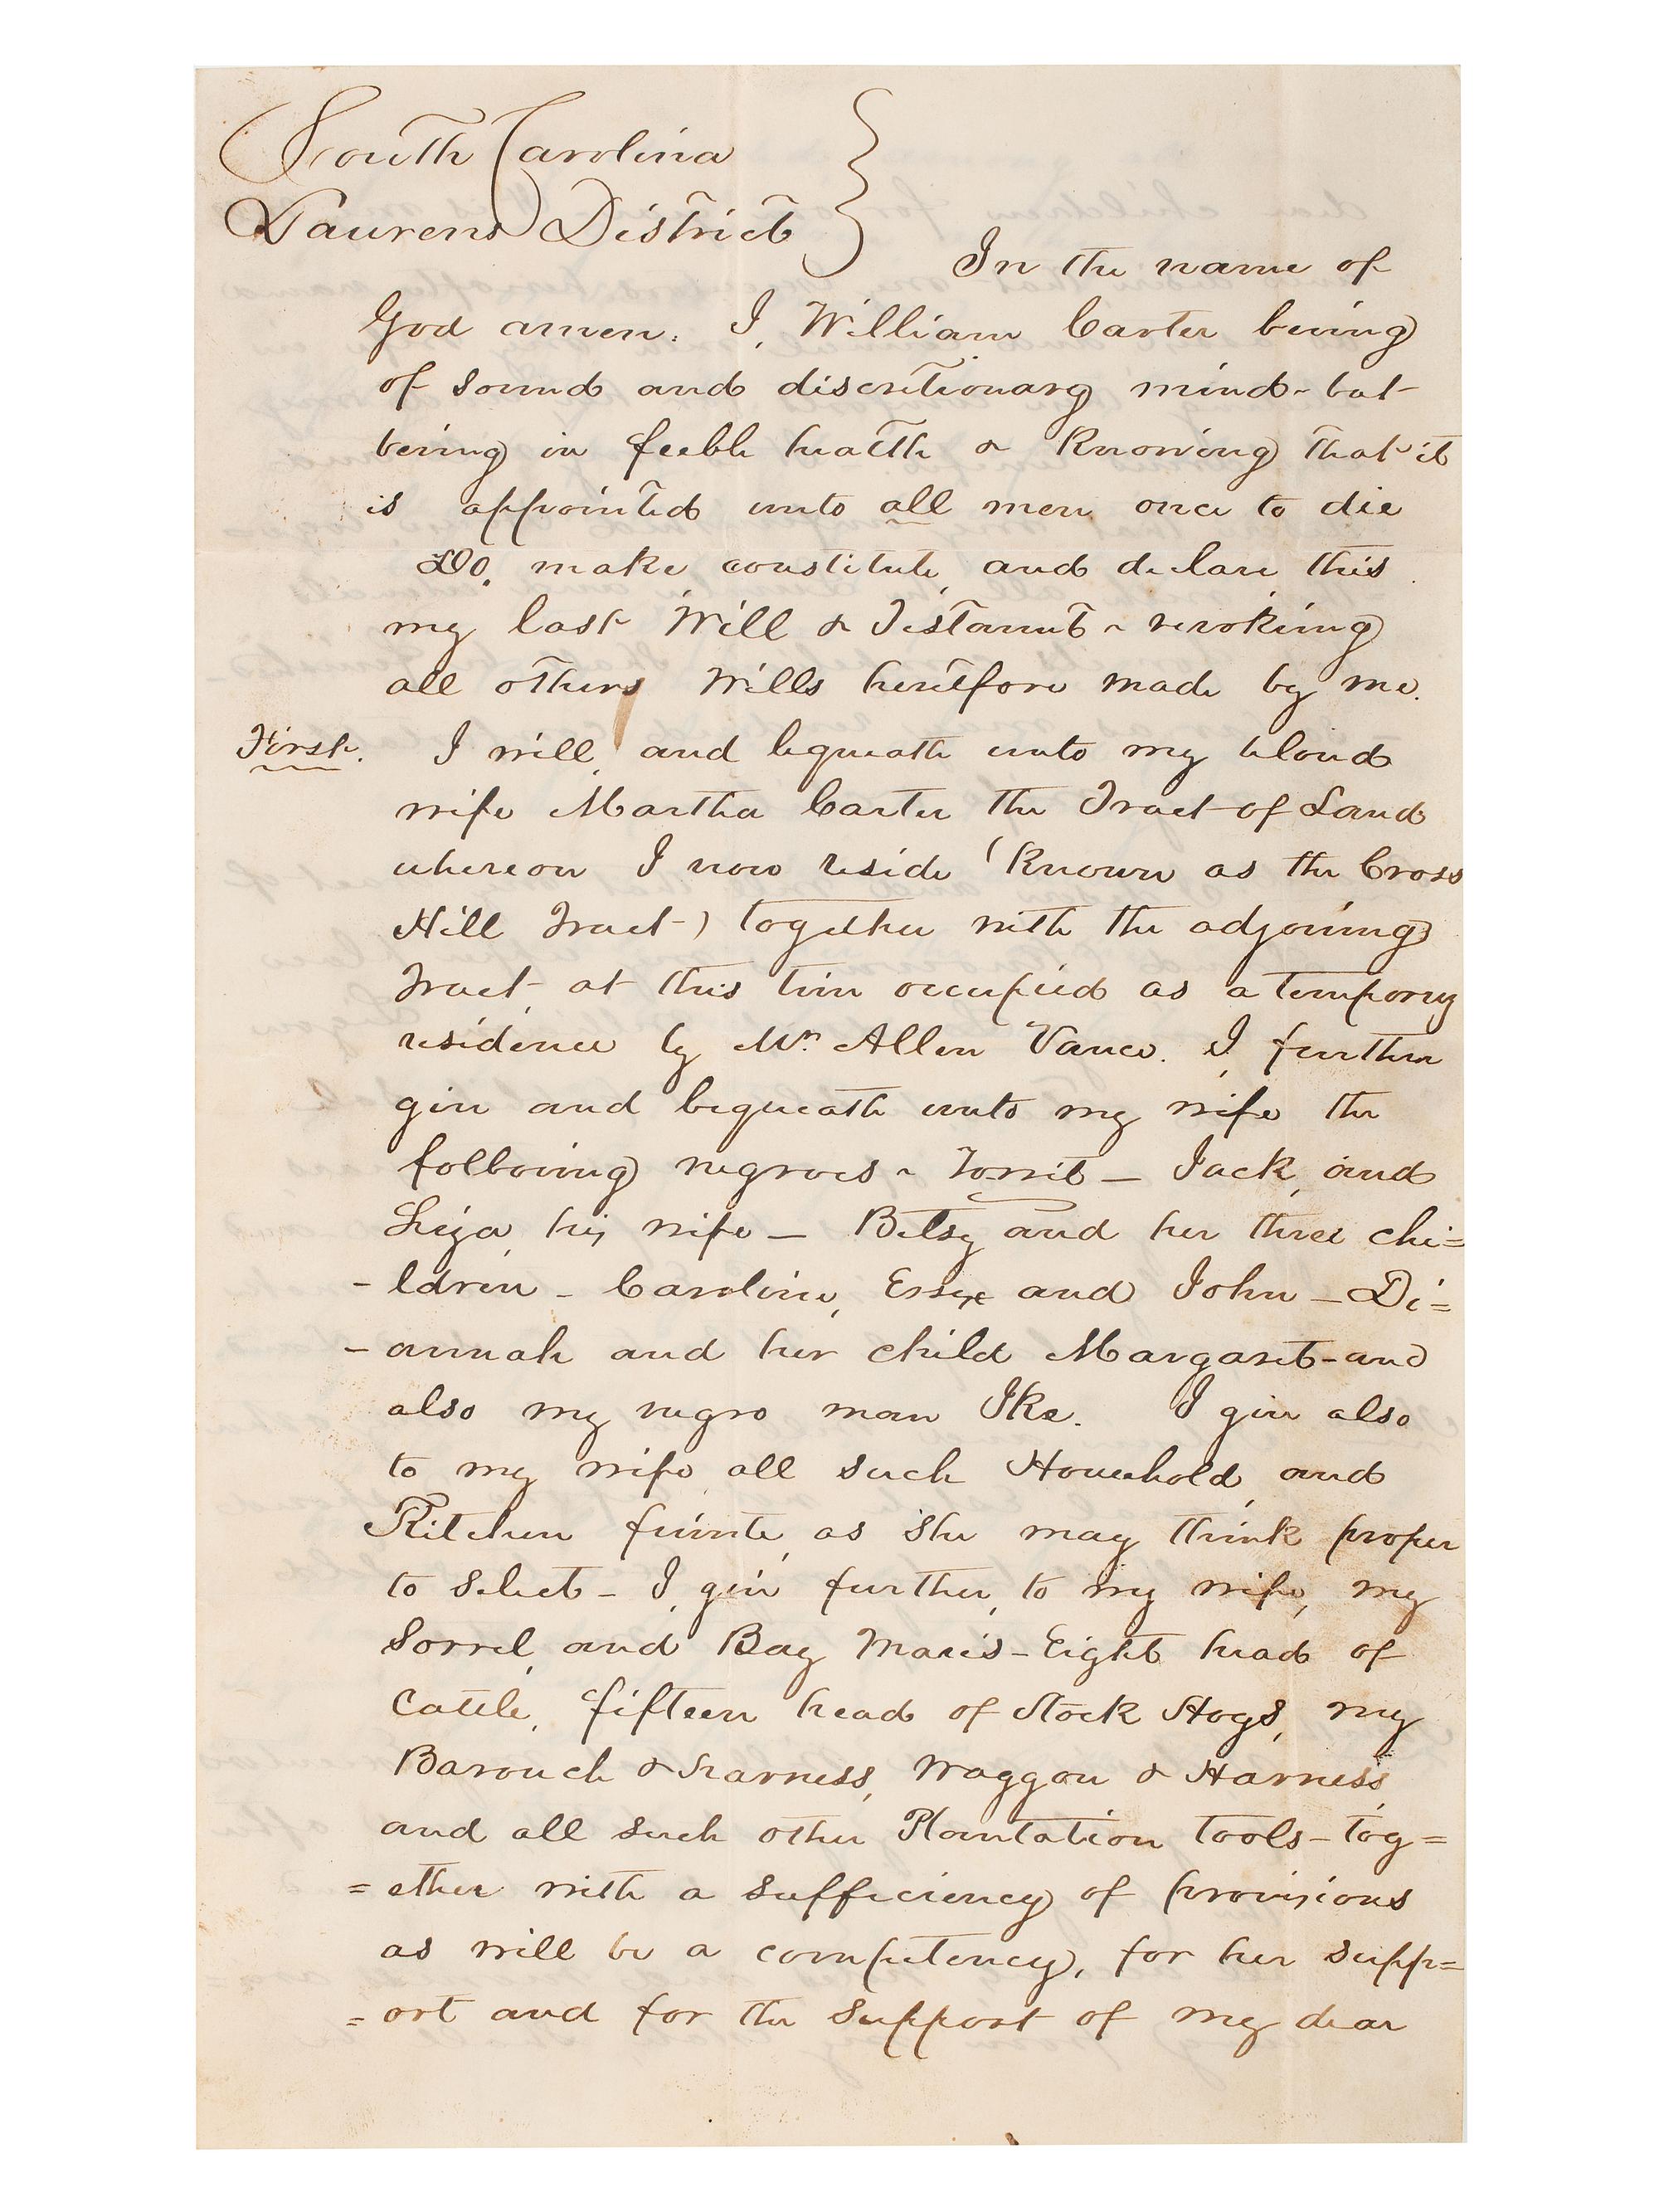 South Carolina
Laurens District
In the name of
God amen. I, William Carter being
of sound and discretionary mind - but
being in feeble health & knowing that it
is appointed unto all men once to die
Do, make constitute and declare this
my last Will & Testament - revoking
all others Wills heretofore made by me.
First. I will, and bequeath unto my beloved
wife Martha Carter the Tract of Land
whereon I now reside (Known as the Cross
Hill Tract) together with the adjoining
Tract at this time occupied as a temporary
residence by Mr. Allen Vance. I, further
give and bequeath unto my wife the
following negroes - - Jack, and
Liza, his wife - Betsy and her three chi=
-ldren - Caroline, Essex and John - Di=
-annah and her child Margaret - and
also my negro man Ike. I give also
to my wife, all such Household, and
Kitchen as she may think proper
to select - I, give further, to my wife, my
Sorrel, and Bay Mares - Eight head of
Cattle, fifteen head of Stock Hogs, my
Barouch & Harness, Waggon & Harness,
and all such other Plantation Tools - tog=
=ether with a sufficiency of provisions
as will be a competency, for her supp=
=ort and for the support of my dear